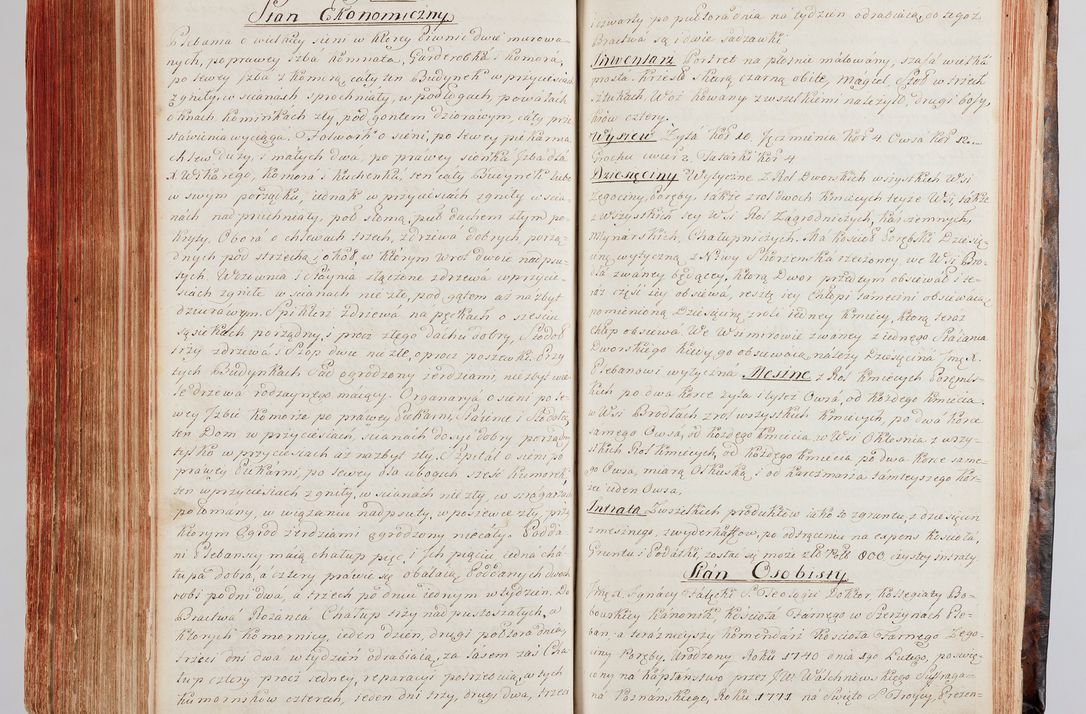 Stan Ekonomiczny
Plebania o wielkiey sieni w ktorey Piwnie dwie murowa=
nych, po prawey Izba komnata, Garderobka i komora,
po lewey Izba z komorą, cały ten Budynek w przyciesiach
zgniły, w scianach sprochniały, w podłogach, powałach
oknach kominkach zły, pod gontem dziorawym, cały prze
stawienia wyciąga. Folwark o sieni, po lewey piekarnia
chlew duży, i małych dwa, po prawey sionka Izba dla
X Wikarego, komora i kuchenka, ten cały Budynek lubo
w swym porządku, iednak w przyciesiach zgniły w scia=
nach nadpruchniały, pod słomą, pod dachem złym po=
kryty. Obora o chlewach trzech, z drzewa dobrych, porzą=
dnych pod strzechą, i okół, w ktorym wrot dwoie nadpsu=
tych. Wozownia i Staynia złączone z drzewa w przycie=
siach zgniłe w scianach nie złe, pod gątem aż nazbyt
dziurawym. Spiklerz z drzewa na pęckach o sześciu
sąsiekach porządny, i procz złego dachu dobry, Stodoł
trzy z drzewa i Szop dwie nie złe, oprocz poszewki. Przy
tych Budynkach Sad ogrodzony żerdziami, nie zbyt wie=
le drzewa rodzaynego maiący. Organaryia o sieni po le=
wey Izbie komorze po prawey Piekarni, Stajence i Stodołce,
ten Dom w przyciesiach, scianach dosyć dobry porządny
tylko w przyciesiach aż nazbyt zły. Szpital o sieni po
prawey Piekarni, po lewey dla ubogich sześć komórek,
ten w przyciesiach zgniły, w scianach nie zły, w stragarzu
połomany, w wiązaniu nadpsuty, w poszewce zły, przy
ktorym Ogrod żerdziami ogrodzony niecały. Podda=
ni Plebanscy maią chałup pięć, i ich pięciu iedna cha=
łupa dobra, a cztery prawie się obalaią, Poddanych dwoch
robi po dni dwa, a trzech po dniu iednym w tydzień. Do
Bractwa Rożańca Chałup trzy nadpustoszałych, a
ktorych komornicy, ieden dzien, drugi połtora dnia,
trzeci dni dwa w tydzień odrabiaią, za lasem zaś Cha=
łup cztery procz iedney, reparacyi potrzebuią, w tych
komornikow czterech, ieden dni trzy, drugi dwa, trzeci
i czwarty po pułtora dnia na tydzień odrabiaią, do tegoż
Bractwa są i dwie sadzawki
Inwentarz Portret na płotnie malowany, szafa wielka
prosta, krzesło skurą czarną obite, Magiel, Stoł w trzech
sztukach, Woż kowany z wszelkiemi należyto, drugi bosy,
krow cztery.
Wysiew Żyta kor 10. Jęczmienia kor 4. Owsa kor 12.
Grochu cwier 2. Tatarki kor 4
Dziesięciny Wytyczne z Rol Dworskich wszystkich Wsi
Zegociny, Poręby, także z rol dwoch kmiecych teyże Wsi, także
z wszystkich tey Wsi Rol Zagrodniczych, karczemnych,
Mynarskich, Chałupniczych. Ma kościoł Porębski Dziesię=
cinę wytyczną z Niwy Skotzenska rzeczoney we Wsi Bro=
dla zwaney będącey, którą Dwor przedtym obsiewał te=
raz część iey obsiewa, resztę iey Chłopi tameczni obsiewaią,
pomienioną Dziesięcinę z roli iedney kmiecy, którą teraz
chłop obsiewa. We Wzmirowie zwaney z iednego Stalania
Dworskiego kiedy go obsiewaią, należy Dziesięcina Jmę X.
Plebanowi wytyczna. Mesine z Rol kmiecych Porembs=
kich po dwa korce żyta i tyleż Owsa, od każdego kmiecia
w Wsi Brodłach z rol wszystkich kmiecych, po dwa korce
samego Owsa, od każdego kmiecia, w Wsi Okleśnia z wszy=
stkich Rol kmiecych, od każdego kmiecia po dwa korce same=
go Owsa, miarą Olkuską, i od karczmarza tamteyszego kor=
zec ieden Owsa.
Intrata Z wszelkich produktow iako to z gruntu, z dziesięcin
z mesznego, z wyderkaffow, po odtrąceniu na expens kościoła,
Gruntu i Podatki, zostać się może złł Poll 800 czystey intraty.
Stan Osobisty
Jmę X. Ignacy Załęski S. Teologii Doktor, kollegiaty Bo=
bowskiey kanonik, kościoła Farnego w Szerzynach Ple=
ban, a teraźnieyszy kommendarz kościoła Farnego Zego=
ciny Poręby. Urodzony Roku 1740 dnia 1go Lutego, poswię=
cony na kapłanstwo przez JW Walchnowskiego Suffraga=
na Poznańskiego, Roku 1771 na Święto S. Troycy, Prezen=